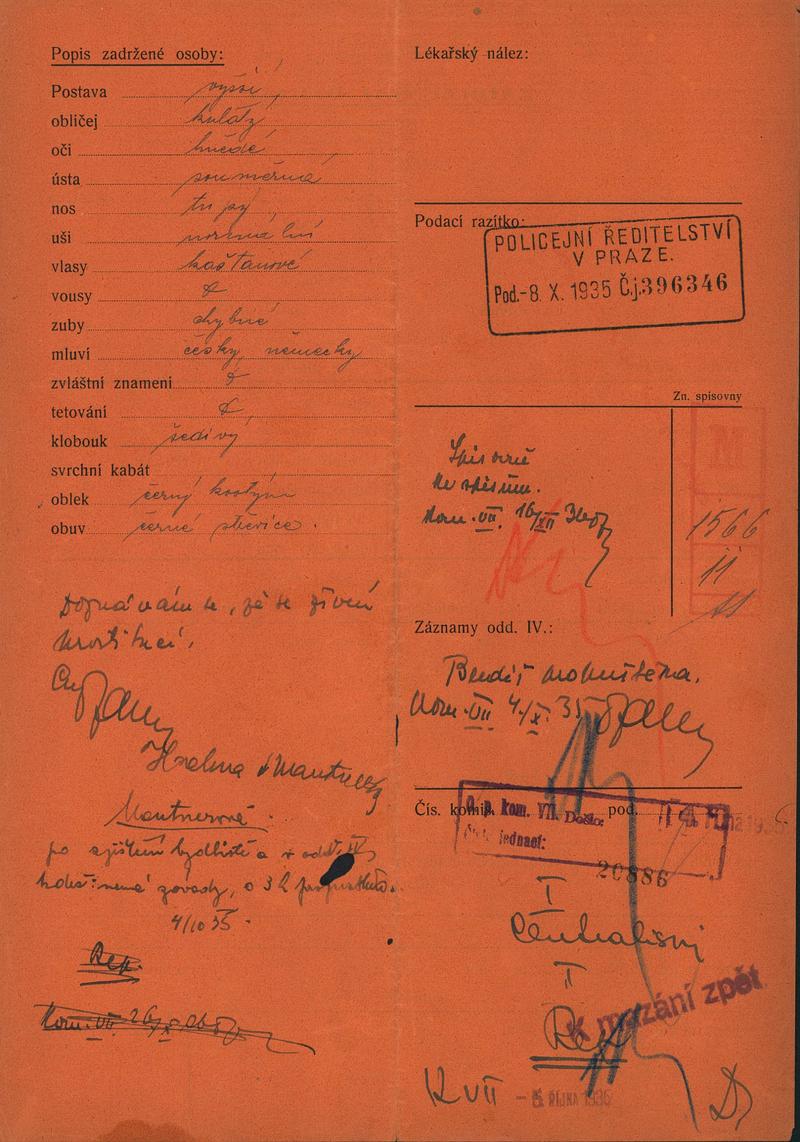 Popis zadržené osoby:
Postava vyšší
obličej kulatý
oči hnědé
ústa souměrná
nos tupý
uši normální
vlasy kaštanové
vousy
zuby chybné
mluví česky, německy
zvláštní znamení
tetování
klobouk šedivý
svrchní kabát
oblek černý kostým
obuv černé střevíce.
Doznávám se, že se živím
prostitucí.
Mantnerová
po zjištění bydliště a v odd. IV
závady, o 3 h
4/10 35
Rep.
Kom. VII 26/X
Lékařský nález:
Podací razítko:
POLICEJNÍ ŘEDITELSTVÍ
V PRAZE.
Pod. -8. X. 1935 Č.j. 396346
Zn. spisovny
Kom. VII. 16/XII
1566
11
Záznamy odd. IV.:
Kom. VII 4/X. 35
Čís. komis. pod.
kom. VII. Došlo:
jednací:
20886
I
I
Rep
K mazání zpět
K VII
- 5. ŘÍJNA 1935